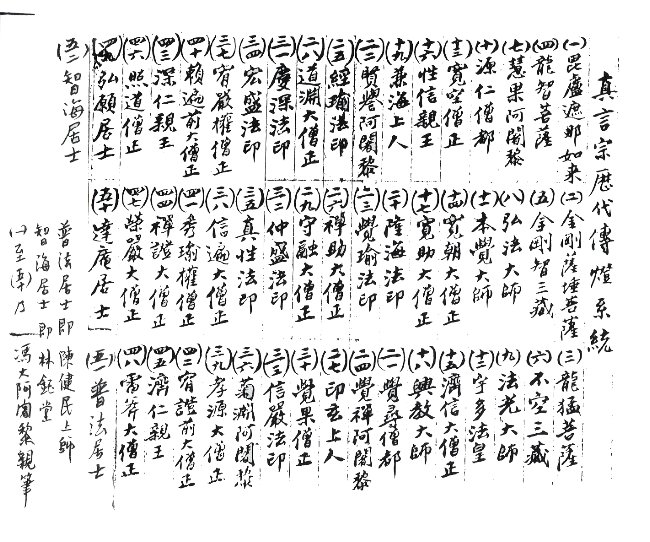 真言宗歷代傳燈系統
(一)毘盧遮那如來 (二)金剛薩埵菩薩 (三)龍猛菩薩
(四)龍智菩薩 (五)金剛智三藏 (六)不空三藏
(七)慧果阿闍黎 (八)弘法大師 (九)法光大師
(十)源仁僧都 (十一)本覺大師 (十二)宇多法皇
(十三)寬空僧正 (十四)寬朝大僧正 (十五)濟信大僧正
(十六)性信親王 (十七)寬助大僧正 (十八)興教大師
(十九)兼海上人 (二十)隆海法印 (二一)覺尋僧都
(二二)勝譽阿闍黎 (二三)覺瑜法印 (二四)覺禪阿闍黎
(二五)經瑜法印 (二六)禪助大僧正 (二七)印玄上人
(二八)道淵大僧正 (二九)守融大僧正 (三十)覺果大僧正
(三一)慶深法印 (三二)仲盛法印 (三三)信嚴法印
(三四)宏盛法印 (三五)真性法印 (三六)菊淵阿闍黎
(三七)宥欲權僧正 (三八)信遍大僧正 (三九)孝源大僧正
(四十)賴遍前大僧正 (四一)秀瑜權僧正 (四二)宥證前大僧正
(四三)深仁親王 (四四)禪證大僧正 (四五)濟仁親王
(四六)照道僧正 (四七)榮嚴大僧正 (四八)雷斧大僧正
(四九)弘願居士 (五十)達庵居士 (五一)普法居士
(五二)智海居士
普法居士即陳健民上師
智海居士即林鈺堂
(一)至(五十)乃馮大阿闍黎親筆